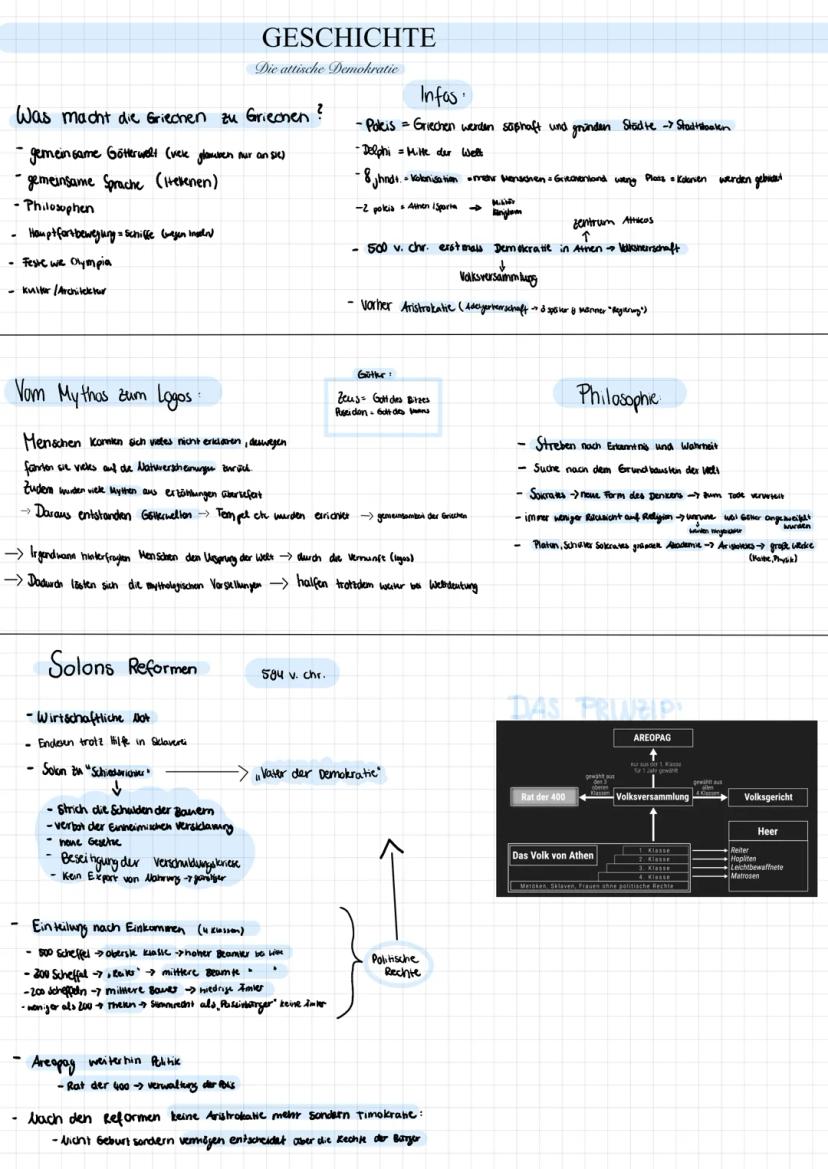 GESCHICHTE
Die attische Demokratie
Was macht die Griechen zu Griechen?
- gemeinsame Götterwelt (viele glauben nur an sie)
- gemeinsame Sprache (Hellenen)
- Philosophen
- Hauptfortbewegung = Schiffe (wegen Inseln)
- Feste wie Olympia
- Kultur/Architektur
Infos:
- Poleis = Griechen werden säßhaft und gründen Städte → Stadtstaaten
- Delphi = Mitte der Welt
- 8 Jhndt. = Kolonisation = mehr Menschen = Griechenland wenig Platz = Kolonien werden gebildet
- 2 poleis = Athen/Sparta →
zentrum Atticas
- 500 v. chr. erstmals Demokratie in Athen → Volksherrschaft
Volksversammlung
- Vorher Aristrokatie (Adelsherrschaft → 3 später 9 Männer "Regierung")
Vom Mythos zum Logos:
Menschen konnten sich vieles nicht erklären, deswegen
führten sie vieles auf die Naturerscheinungen zurück.
Zudem wurden viele Mythen aus erzählungen überliefert
→ Daraus entstanden Götterwelten → Tempel etc wurden errichtet → gemeinsamkeit der Griechen
→ Irgendwann hinterfragten Menschen den Ursprung der Welt → durch die Vernunft (logos)
→ Dadurch lösten sich die mythologischen Vorstellungen → halfen trotzdem weiter bei Weltdeutung
Götter:
Zeus = Gott des Blitzes
Poseidon = Gott des
Philosophie:
- Streben nach Erkenntnis und Wahrheit
- Suche nach dem Grundbaustein der Welt
- Sokrates → neue Form des Denkens → zum Tode verurteilt
- immer weniger Rücksicht auf Religion → weil Götter angezweifelt wurden
wurden hingerichtet
- Platon, Schüler Sokrates gründete Akademie → Aristoteles → große Werke
Solons Reformen
594 v. chr.
- Wirtschaftliche Not
- Endeten trotz Hilfe in Sklaverei
- Solon zu "Schiedsrichter" → „Vater der Demokratie"
- Strich die Schulden der Bauern
- verbot der Einheimischen Versklavung
- neue Gesetze
- Beseitigung der Verschuldungskriese
- Kein Export von Nahrung → günstiger
- Einteilung nach Einkommen (4 Klassen)
- 500 Scheffel → oberste Klasse → hoher Beamter
- 300 Scheffel → „Reiter" → mittlere Beamte " "
- 200 Scheffeln → mittlere Bauer → niedrige Ämter
- weniger als 200 → Theten → Stimmrecht als „Passivbürger" keine Ämter
Politische
Rechte
- Areopag weiterhin Politik
- Rat der 400 → Verwaltung der Polis
- Nach den Reformen keine Aristrokatie mehr sondern Timokratie:
- Nicht Geburt sondern vermögen entscheidet über die Rechte der Bürger
DAS PRINZIP:
AREOPAG
nur aus der 1. Klasse
für 1 Jahr gewählt
gewählt
aus
den 3
oberen
Klassen
gewählt aus
allen
4 Klassen
Rat der 400
Volksversammlung
Volksgericht
Heer
Das Volk von Athen
1. Klasse
2. Klasse
3. Klasse
4. Klasse
Reiter
Hopliten
Leichtbewaffnete
Matrosen
Metöken, Sklaven, Frauen ohne politische Rechte